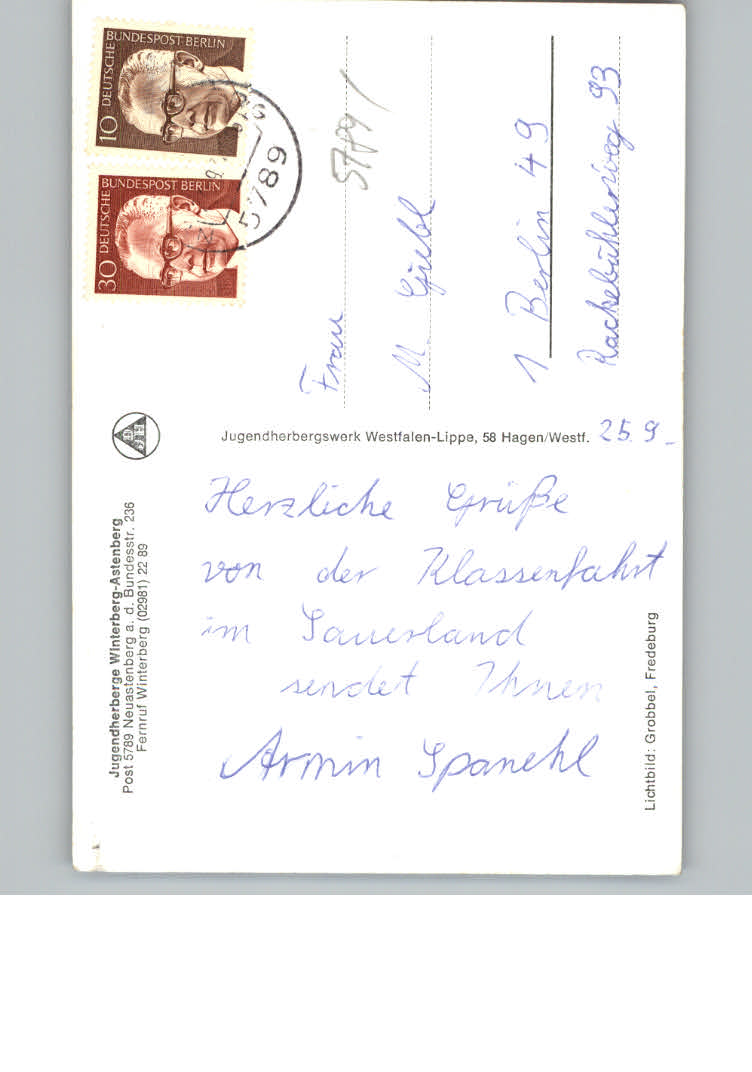 10 DEUTSCHE BUNDESPOST BERLIN
30 DEUTSCHE BUNDESPOST BERLIN
5789
5789
Frau
M. Giebl
1 Berlin 49
Rackebühlerweg 93
DJH
Jugendherbergswerk Westfalen-Lippe, 58 Hagen/Westf.
25. 9.
Herzliche Grüße
von der Klassenfahrt
im Sauerland
sendet Ihnen
Armin Spanehl
Jugendherberge Winterberg-Astenberg
Post 5789 Neuastenberg a. d. Bundesstr. 236
Fernruf Winterberg (02981) 22 89
Lichtbild: Grobbel, Fredeburg